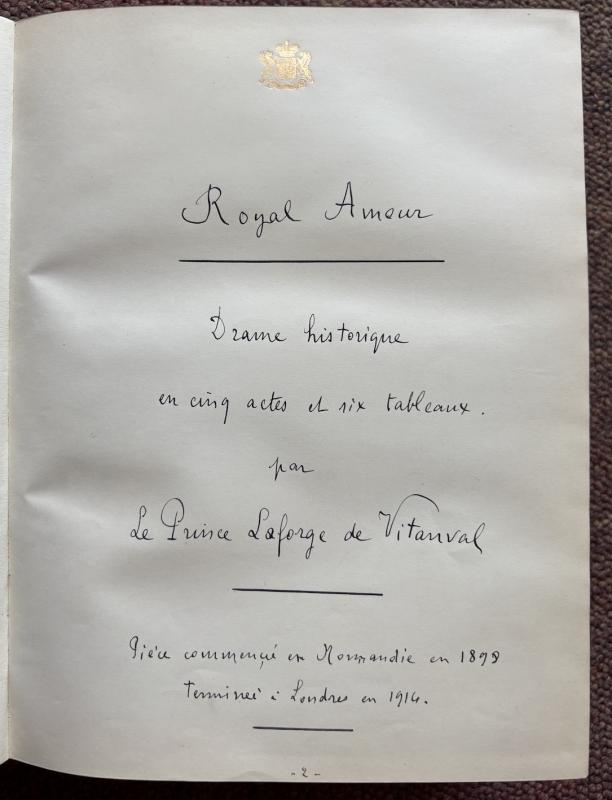 Royal Amour
Drame historique
en cinq actes et six tableaux.
par
Le Prince Laforge de Vitanval
Pièce commençé en Normandie en 1898
Terminée à Londres en 1914.
- 2 -